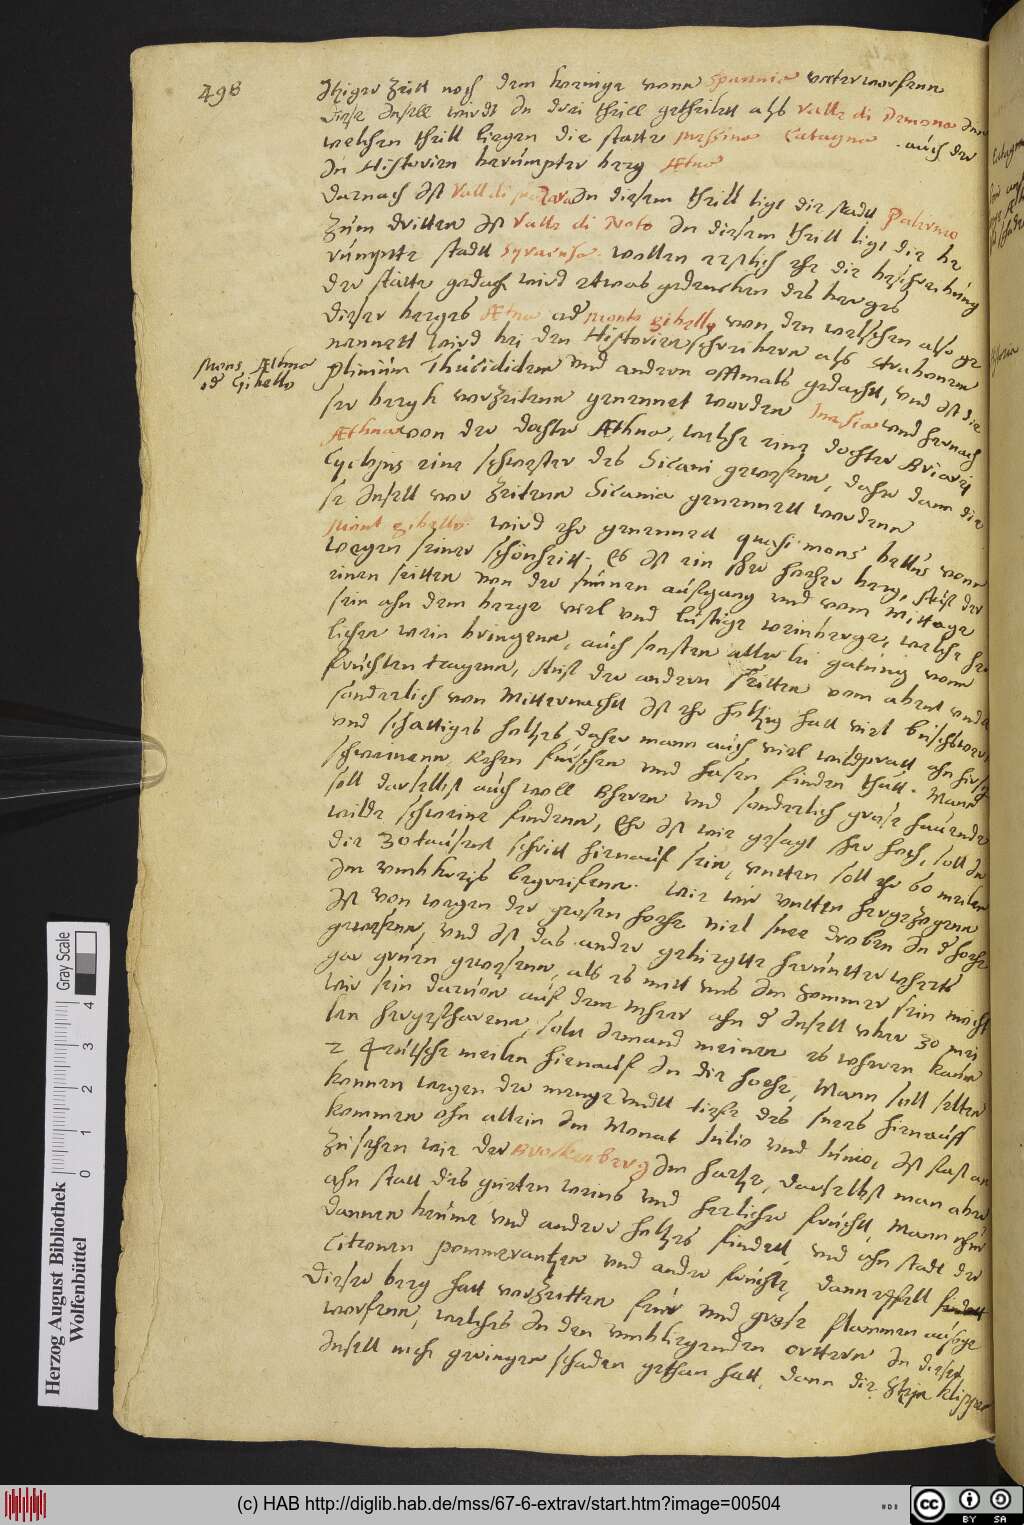 498
Itziger Zeitt noch dem koenige vonn Spannia unterworfenn
Diese Insell wirdt In drei theill getheilett alß Valle di Demona Inn
welchem theill liegen die statte Messina Catagna auch der
In Historien berümpter berg Ætna
Darnach Ist Vall di Mazara In diesem theill ligt die stadt Palermo
Zum dritten Ist Valle di Noto In diesem theill ligt die be
rümpte stadtt Syracusa. wollen erstlich ehe die beschreibung
der stätte gedacht wird etwas gedencken des berges
Dieser berges Ætna od Monte gibello von den welschen also ge
nennett wird bei den Historienschreibern als Strabonem
Mons Æthna
od Gibello
Plinium Thucididem und andern offtmals gedacht, und Ist die
ser bergk vorzeitenn genennet worden Inesia und hernach
Æthna von der dochter Æthna, welche eine dochter Briarei
Cyclopis eine schwester des Sicani gewesenn, daher dann die
se Insell vor Zeitenn Sicania genennett wordenn
Mont gibello wird ehr genennet quasi mons bellus vonn
wegen seiner schonheitt. Es Ist ein sehr hoher berg, Auß der
einen seitten von der sunnen aufgang und vom Mittage
sein ahn dem berge viel und lustige weinberge, welche her
lichen wein bringenn, auch sonsten allerlei gatung vonn
fruchten tragenn, Auß der andern Seitten vom abent und
sonderlich von Mitternacht Ist ehr holtzig hatt viel büschwerc
und schattiges holtzes, daher mann auch viel wildpratt ahn hirsch
schweinenn Rehen füchsen und hasen finden thutt. Mann
soll daselbst auch woll Bheren und sonderlich grose hauende
wilde schweine findenn, Ehr Ist wie gesagt sehr hoch, soll In
die 30 tausent schritt hienauf sein, untten soll ehr 60 meilen
Im umbkreiß begreifenn. Wie wir untten hergezogenn
Ist von wegen der grosen hoehe viel snee droben In d hoehe
gewesenn, und Ist das ander gebirgtte herunter wherts
gar grün gewesenn, als es mitt uns Im Sommer sein mocht
wir sein darvon auf dem mher ahn d Insell uber 30 mei
len hergefharenn, solte Iemand meinen es wheren kaum
2 Teutsche meilen hienauf In die hoehe, Mann soll selten
konnen wegen der menge undtt tiefe des snees hienauff
kommen ohn allein Im Monat Iulio und Iunio, Ist fast an
zusehen wie der Brockerberg Im hartze, daselbst man aber
ahn statt des guten weins und herlicher frücht, Mann ohn
Dannen beume und anderer holtzes findett, und ahn stadt der
Citronen pommerantzen und ander früchte, dann epffell
Dieser berg hatt vorzeitten feur und grose flammen außge
worfenn, welches In den umbliegenden orttern In dieser
Insell nicht geringen schaden gethan hatt, dann die Stein klipper
Herzog August Bibliothek
Wolfenbüttel
0 1 2 3 4
Gray Scale
(c) HAB http://diglib.hab.de/mss/67-6-extrav/start.htm?image=00504
CC BY SA